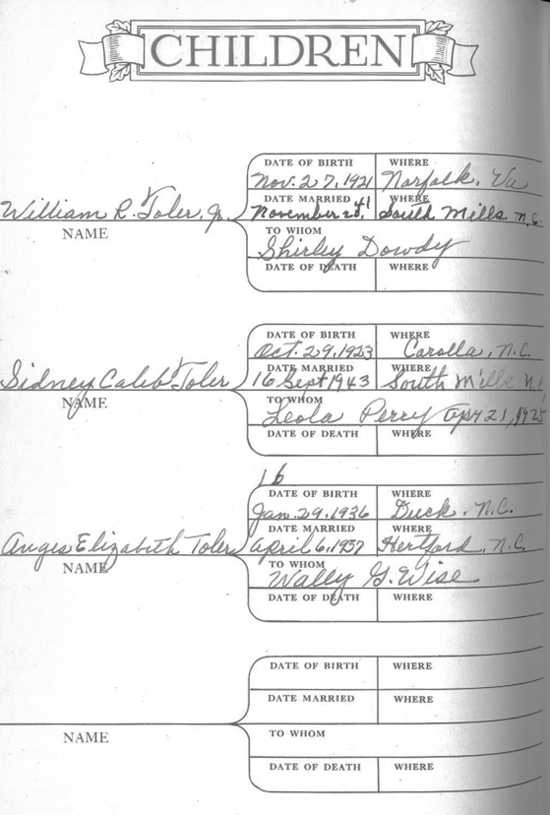 CHILDREN
DATE OF BIRTH WHERE
Nov. 27, 1921 Norfolk, Va
DATE MARRIED WHERE
William R. Toler, Jr. November 28, 41 South Mills N.C.
NAME TO WHOM
Shirley Dowdy
DATE OF DEATH WHERE
DATE OF BIRTH WHERE
Oct. 29, 1923 Corolla, N.C.
DATE MARRIED WHERE
Sidney Caleb Toler 16 Sept 1943 South Mills N.C.
NAME TO WHOM
Leola Perry Apr 21, 1925
DATE OF DEATH WHERE
16
DATE OF BIRTH WHERE
Jan. 29, 1936 Duck, N.C.
DATE MARRIED WHERE
Anges Elizabeth Toler April 6, 1957 Hertford, N.C.
NAME TO WHOM
Wally G. Wise
DATE OF DEATH WHERE
DATE OF BIRTH WHERE
DATE MARRIED WHERE
NAME TO WHOM
DATE OF DEATH WHERE